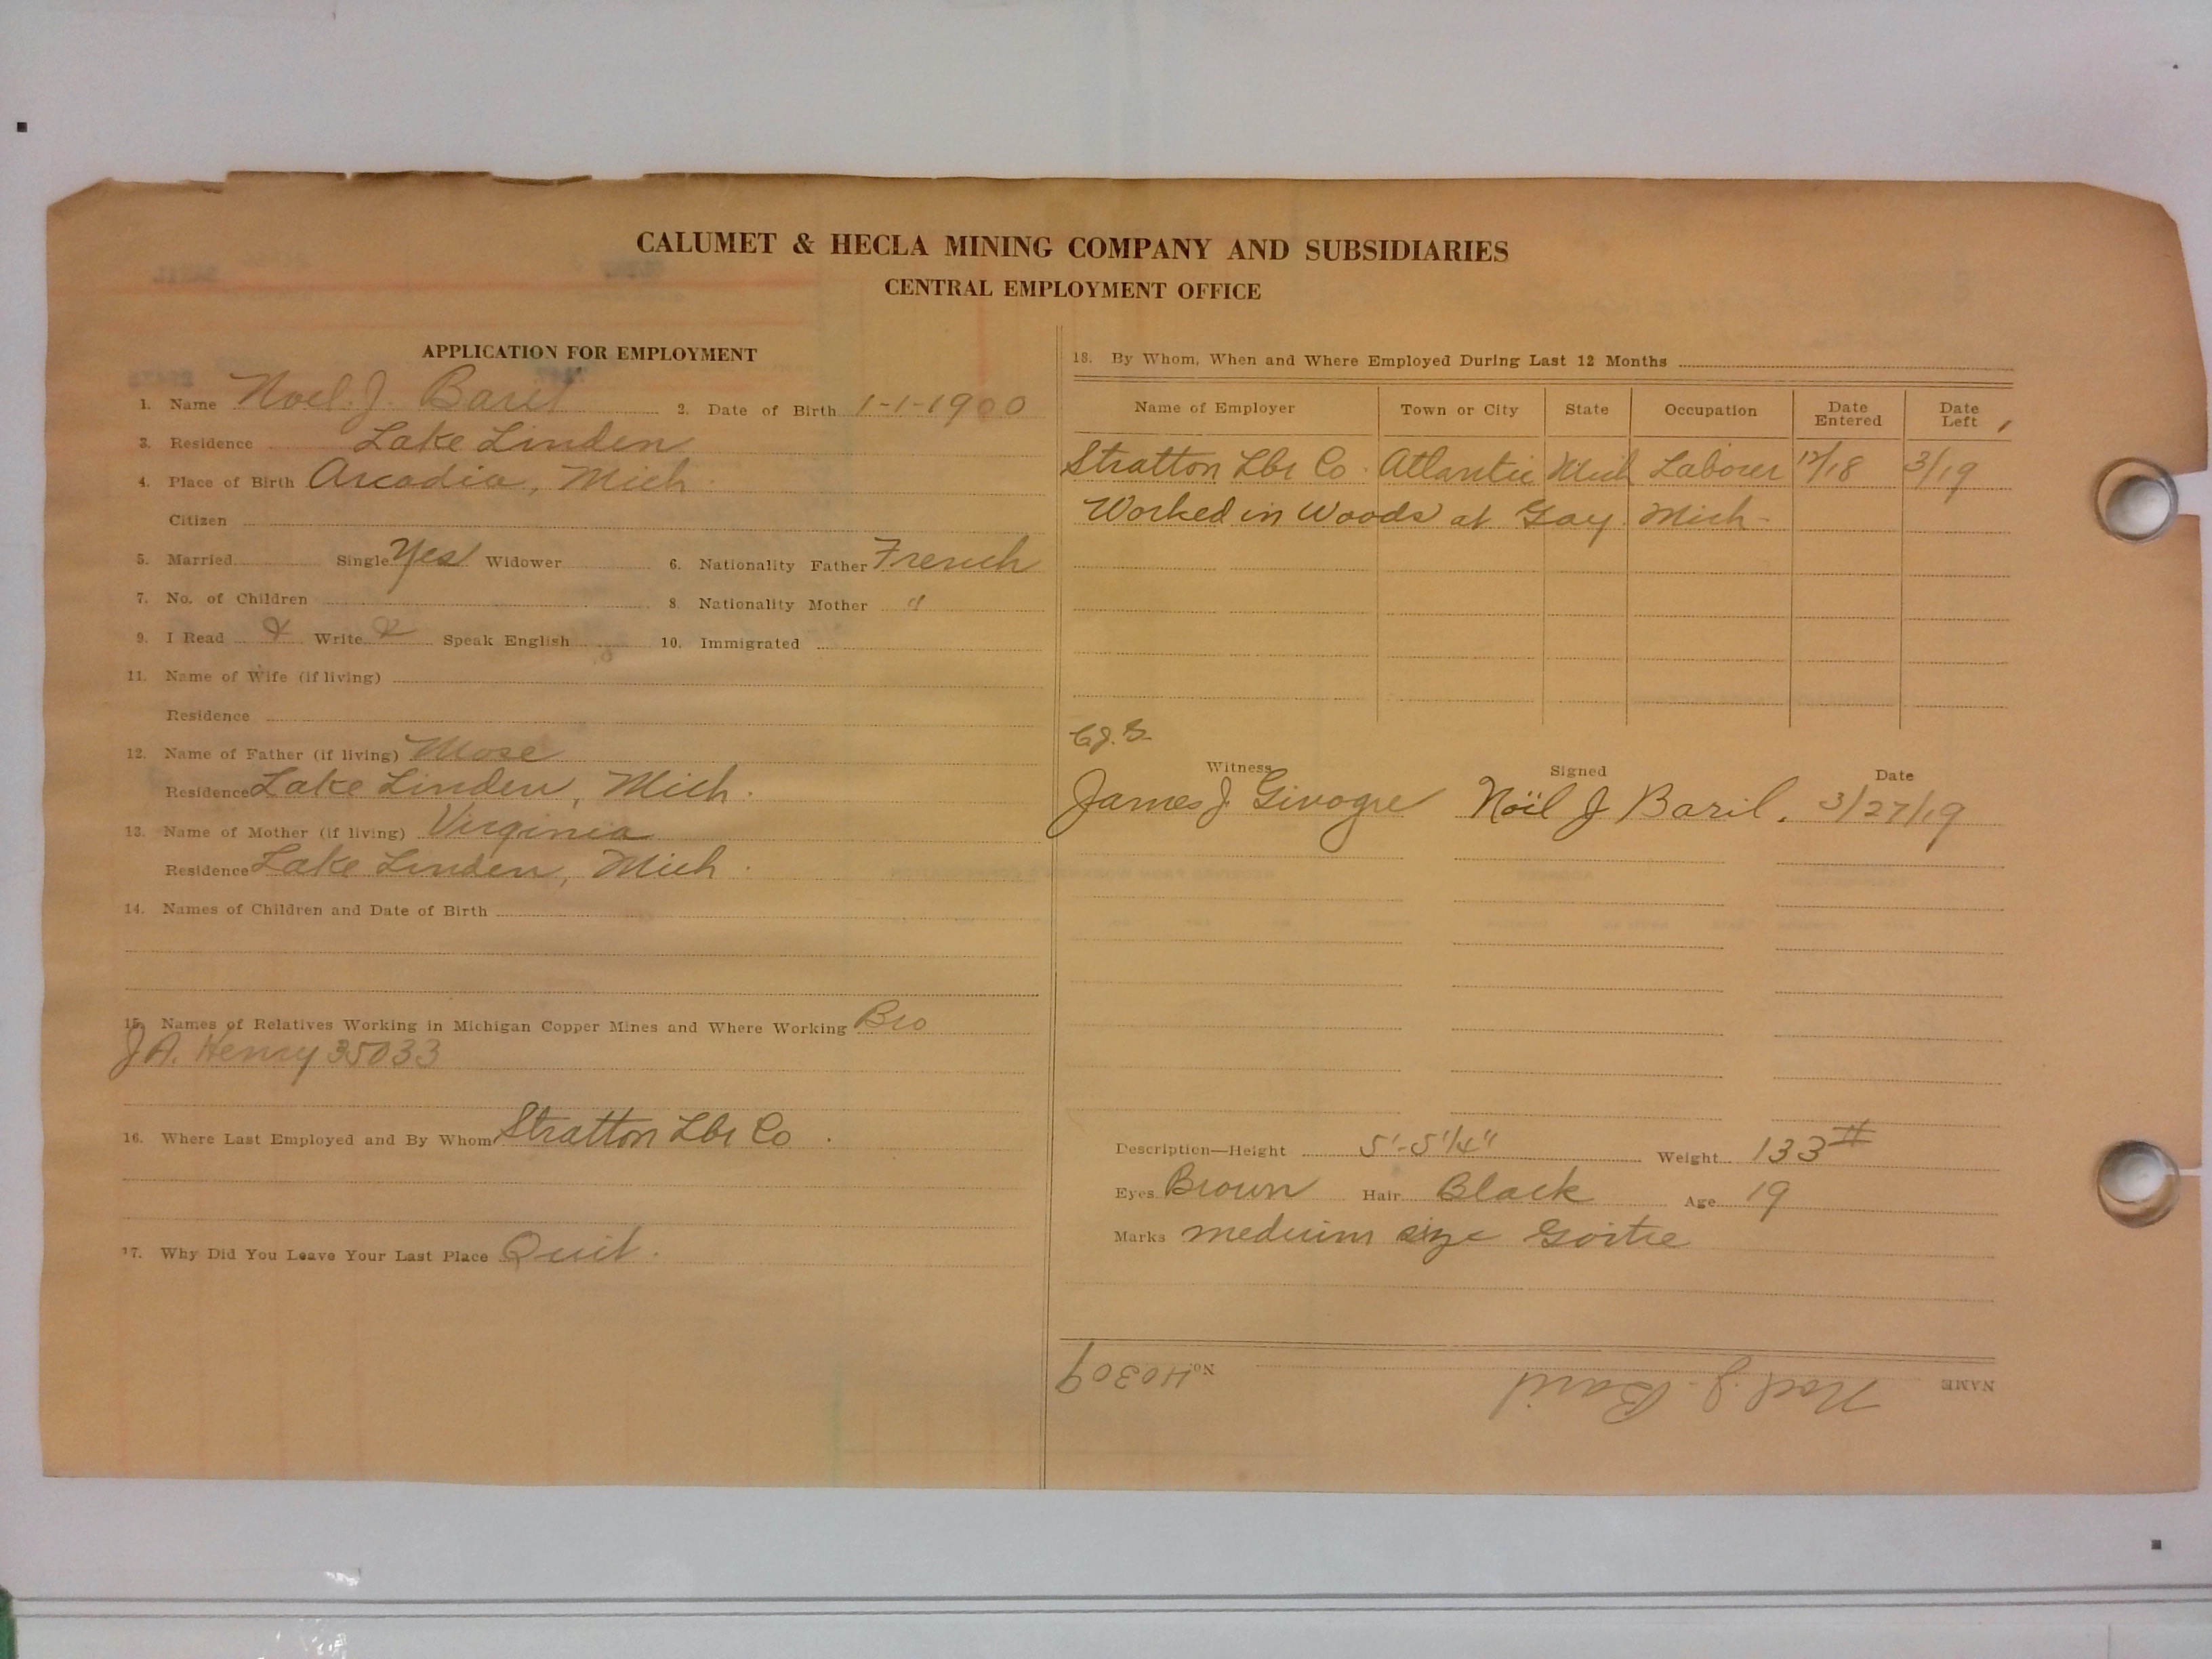 CALUMET & HECLA MINING COMPANY AND SUBSIDIARIES
CENTRAL EMPLOYMENT OFFICE
APPLICATION FOR EMPLOYMENT
1. Name Noel. J. Baril 2. Date of Birth 1-1-1900
3. Residence Lake Linden
4. Place of Birth Arcadia, Mich.
Citizen
5. Married Single Yes Widower 6. Nationality Father French
7. No. of Children 8. Nationality Mother "
9. I Read Write Speak English 10. Immigrated
11. Name of Wife (if living)
Residence
12. Name of Father (if living) Mose
Residence Lake Linden, Mich.
13. Name of Mother (if living) Virginia
Residence Lake Linden, Mich.
14. Names of Children and Date of Birth
15. Names of Relatives Working in Michigan Copper Mines and Where Working Bro
J.A. Henry 35033
16. Where Last Employed and By Whom Stratton Lbr Co.
17. Why Did You Leave Your Last Place Quit.
18. By Whom, When and Where Employed During Last 12 Months
Name of Employer Town or City State Occupation Date Entered Date Left
Stratton Lbr Co. Atlantic Mich Laborer 12/18 3/19
Worked in Woods at Gay Mich-
Witness Signed Date
James J. Noël J Baril. 3/27/19
Description—Height 5'-5 1/4" Weight 133#
Eyes Brown Hair Black Age 19
Marks medium size Goitre
NAME Noel J. Baril No. H0309